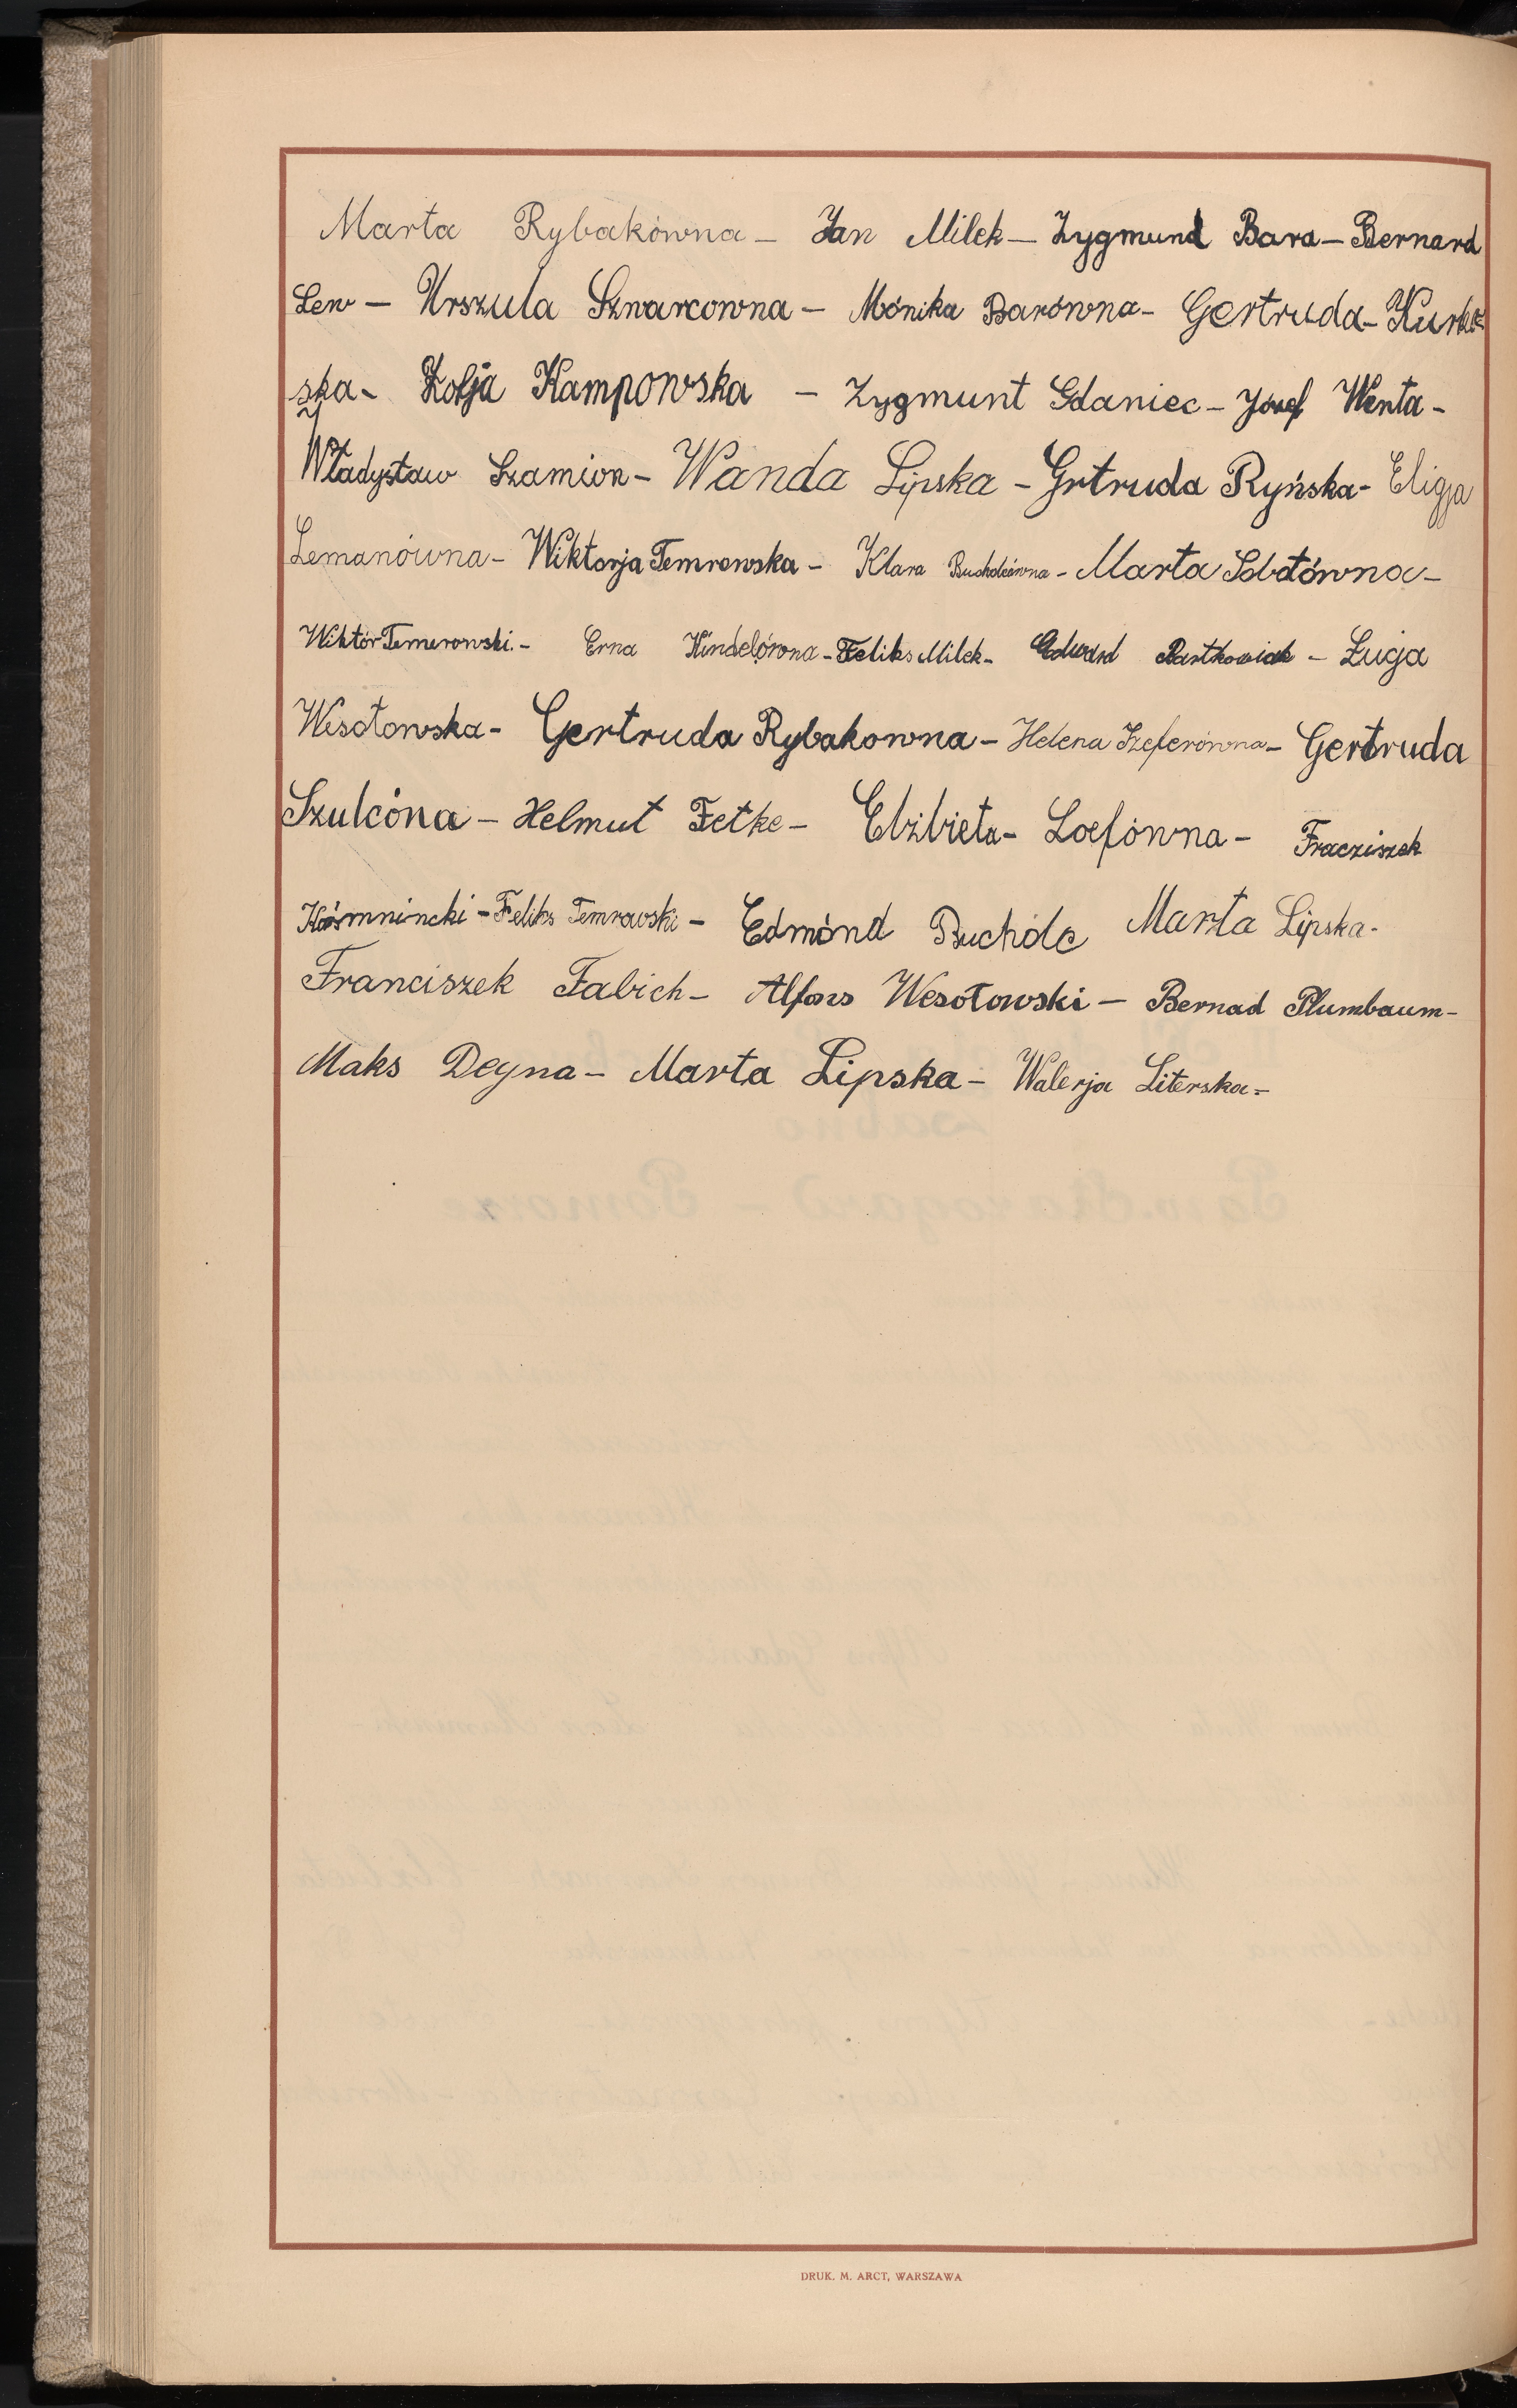 Marta Rybakówna – Jan Milek – Zygmund Bara – Bernard
Lew – Urszula Szwarcowna – Mónika Barówna – Gertruda – Kurkow
ska – Zofja Kampowska – Zygmunt Gdaniec – Józef Wenta –
Władysław Szamion – Wanda Lipska – Grtruda Ryńska – Eligja
Lemanówna – Wiktorja Temrowska – Klara Bucholcówna – Marta Sobotówna –
Wiktór Temerowski. – Erna Hindelówna – Feliks Milek – Edward Bartkowiak – Łuija
Wesołowska – Gertruda Rybakowna – Helena Szeferówna – Gertruda
Szulcóna – Helmut Fetke – Elżbieta – Loefówna – Fracziszek
Kósmnincki – Feliks Temrowski – Edmónd Bucholc Marta Lipska –
Franciszek Fabich – Alfons Wesołowski – Bernad Plumbaum –
Maks Deyna – Marta Lipska – Walerja Literska =
DRUK. M. ARCT, WARSZAWA